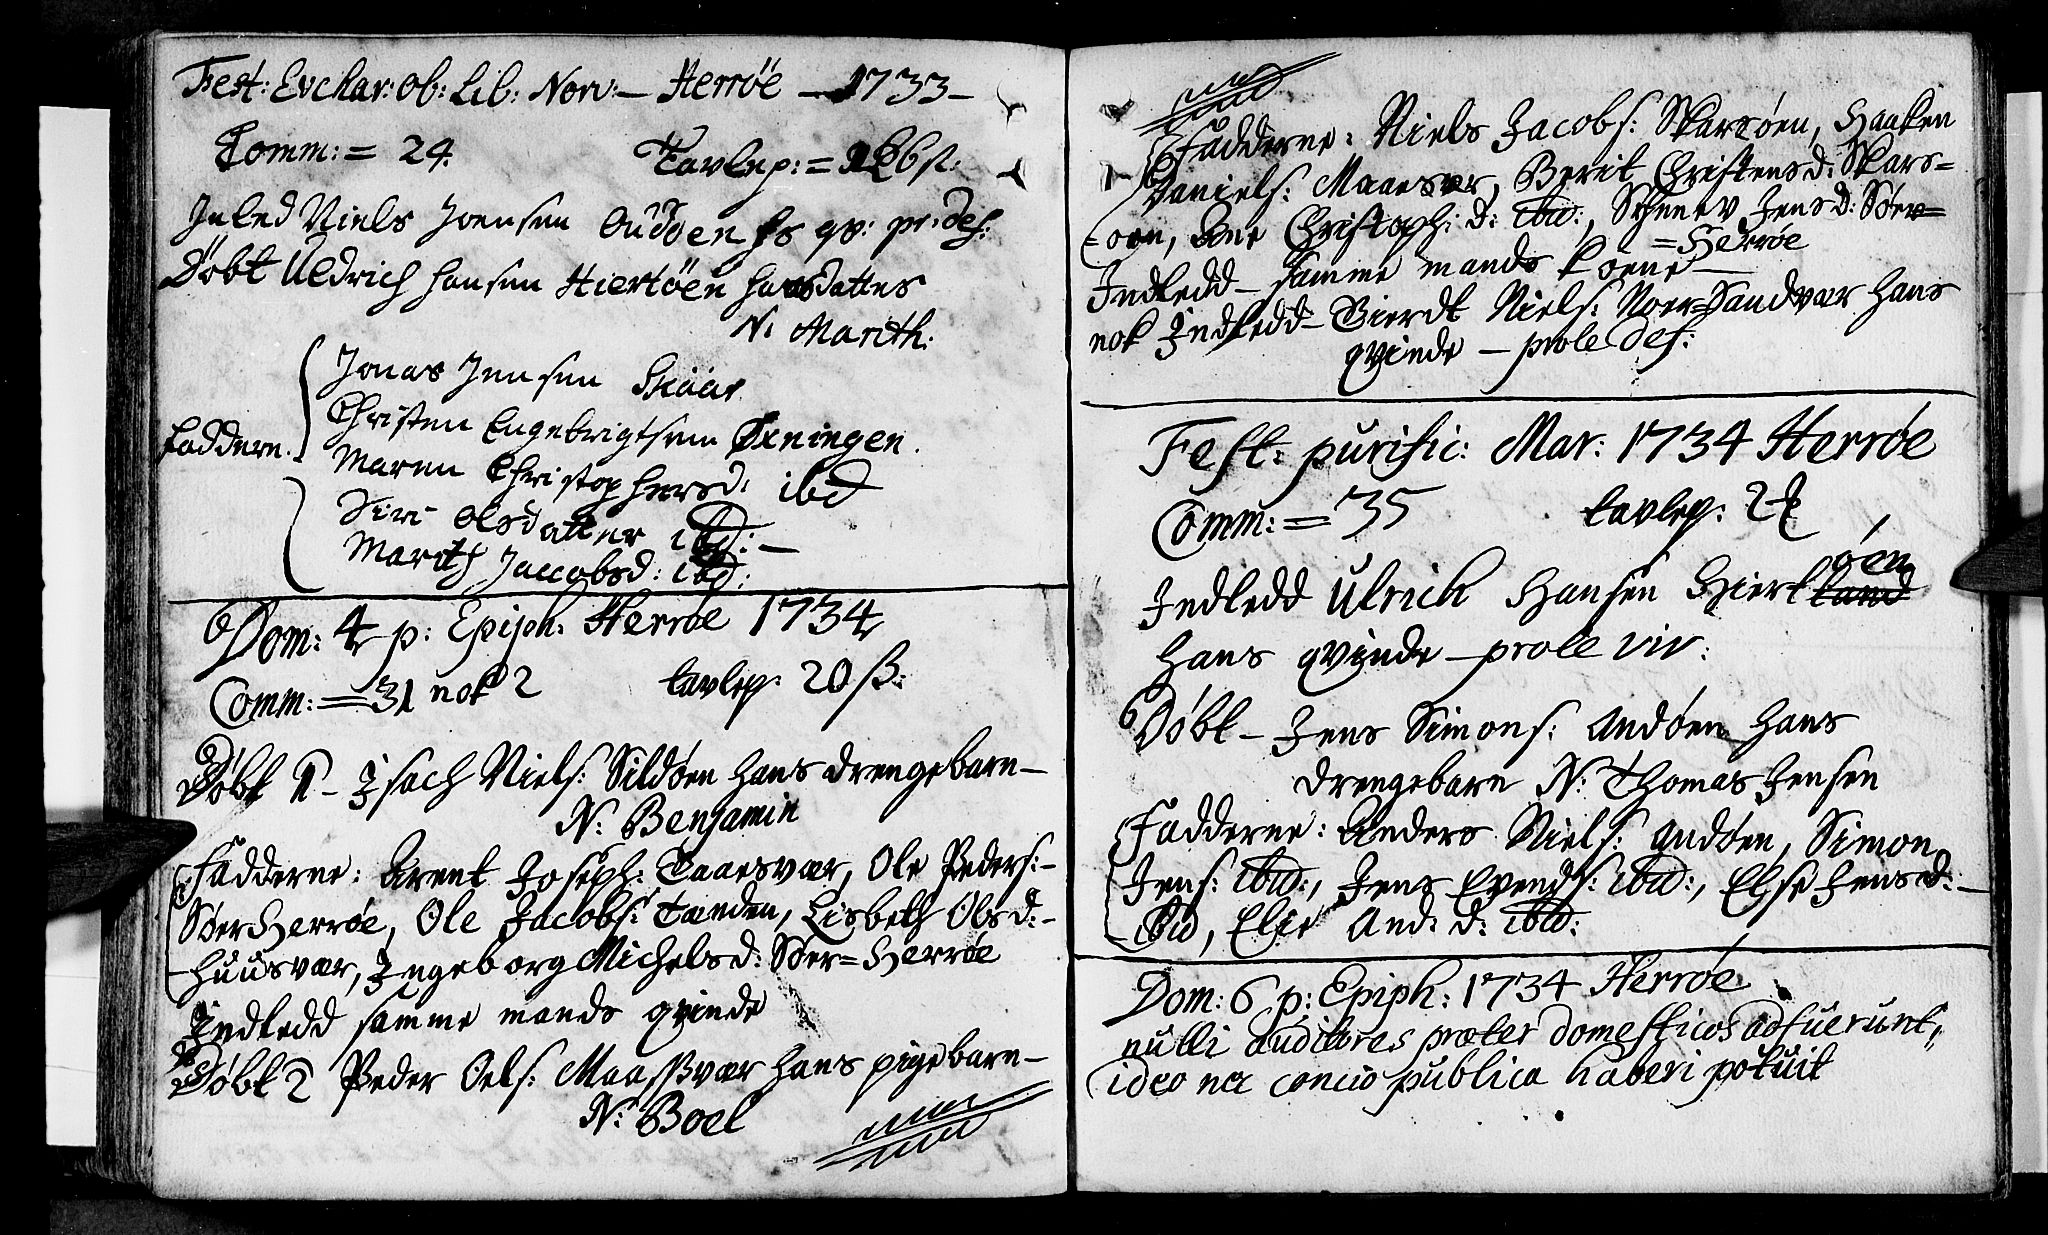 Fest: Evchar: Ob: Lib: Norv:— Herrøe — 1733 —
Comm: = 24. Tavlep: =
Inled Niels Joensen qv: pr: def:
Døbt Uldrich Hansen Hiertöen hans datter
N: Marith:
Jonas Jensen Skaar
Christen Engebrigtsen Øxningen.
faddern. Maren Christophersd: ibd
Siri Olsdatter ibd: —
Marith Jaccobsd: ibd:
Dom: 4 p: Epiph: Herrøe 1734
Comm: = 31 nok 2 tavlep: 20 ß:
Døbt 1 – Isach Niels: Sildøen hans drengebarn —
N: Benjamin
Fadderne: Arent Joseph: Taaesvær, Ole Peders: –
Søer Herrøe, Ole Jacobs: Tænden, Lisbeth Olsd: –
– Huusvær, Ingeborg Michelsd: Søer = Herrøe
Indledd samme mands qvinde
Døbt 2 Peder Oels: Maasvær hans pigebarn —
N: Boel
Fadderne: Niels Jacobs: Skarsøen, Haaken
Daniels: Maaesvær, Berit Christensd: Skars=
– øen, Ane Christoph: d: ibid:, Jensd: Søer=
=Herrøe
Indledd – samme mands koene —
nok Indledd – Sierdt Niels: Noer=Sandvær hans
qvinde — prole def:
Fest: purific: Mar: 1734 Herrøe
Comm: = 35 tavlep:
øen
Indledd Ulrich Hansen Hiertland
hans qvinde — prole viv:
Døbt – Jens Simons: Andøen hans
drengebarn N: Thomas Jensen
Fadderne: Anders Niels: Andøen, Simon
Jens: ibid:, Jens Evends: ibid:, Else Hensd: –
ibid, Elie And: d: ibid:
Dom: 6 p: Epiph: 1734 Herrøe
nulli auditores præter domesticos adfuerunt,
ideo nec concio publica haberi potuit